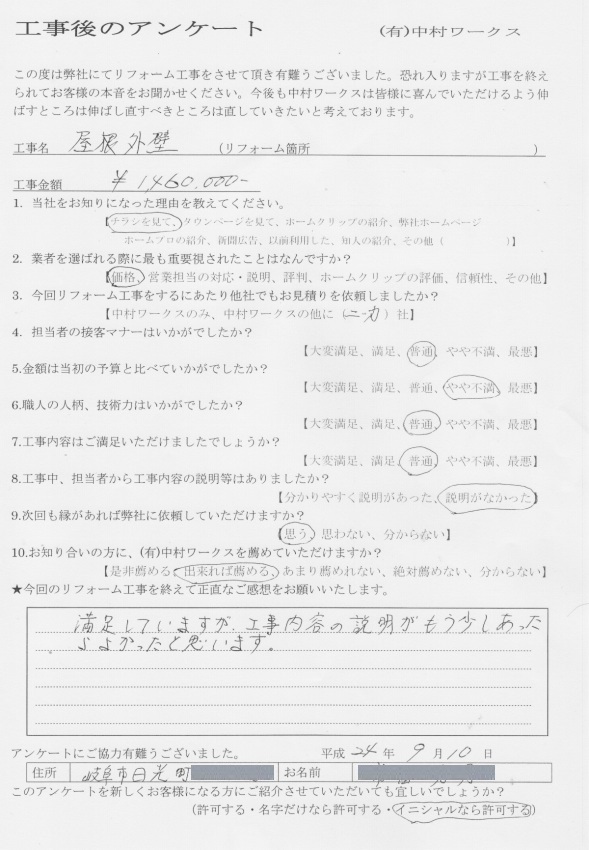 工事後のアンケート
(有)中村ワークス
この度は弊社にてリフォーム工事をさせて頂き有難うございました。恐れ入りますが工事を終え
られてお客様の本音をお聞かせください。今後も中村ワークスは皆様に喜んでいただけるよう伸
ばすところは伸ばし直すべきところは直していきたいと考えております。
工事名 屋根外壁 (リフォーム箇所 )
工事金額 ¥1460.000-
1. 当社をお知りになった理由を教えてください。
【チラシを見て、タウンページを見て、ホームクリップの紹介、弊社ホームページ
ホームプロの紹介、新聞広告、以前利用した、知人の紹介、その他( )】
2. 業者を選ばれる際に最も重要視されたことはなんですか?
【価格、営業担当の対応・説明、評判、ホームクリップの評価、信頼性、その他】
3. 今回リフォーム工事をするにあたり他社でもお見積りを依頼しましたか?
【中村ワークスのみ、中村ワークスの他に( )社】
4. 担当者の接客マナーはいかがでしたか?
【大変満足、満足、普通、やや不満、最悪】
5.金額は当初の予算と比べていかがでしたか?
【大変満足、満足、普通、やや不満、最悪】
6.職人の人柄、技術力はいかがでしたか?
【大変満足、満足、普通、やや不満、最悪】
7.工事内容はご満足いただけましたでしょうか?
【大変満足、満足、普通、やや不満、最悪】
8.工事中、担当者から工事内容の説明等はありましたか?
【分かりやすく説明があった、説明がなかった】
9.次回も縁があれば弊社に依頼していただけますか?
【思う、思わない、分からない】
10.お知り合いの方に、(有)中村ワークスを薦めていただけますか?
【是非薦める、出来れば薦める、あまり薦めれない、絶対薦めない、分からない】
★今回のリフォーム工事を終えて正直なご感想をお願いいたします。
満足していますが、工事内容の説明がもう少しあった
らよかったと思います。
アンケートにご協力有難うございました。 平成 24 年 9 月 10 日
住所 岐阜市日光町 お名前
このアンケートを新しくお客様になる方にご紹介させていただいても宜しいでしょうか?
(許可する・名字だけなら許可する・イニシャルなら許可する)